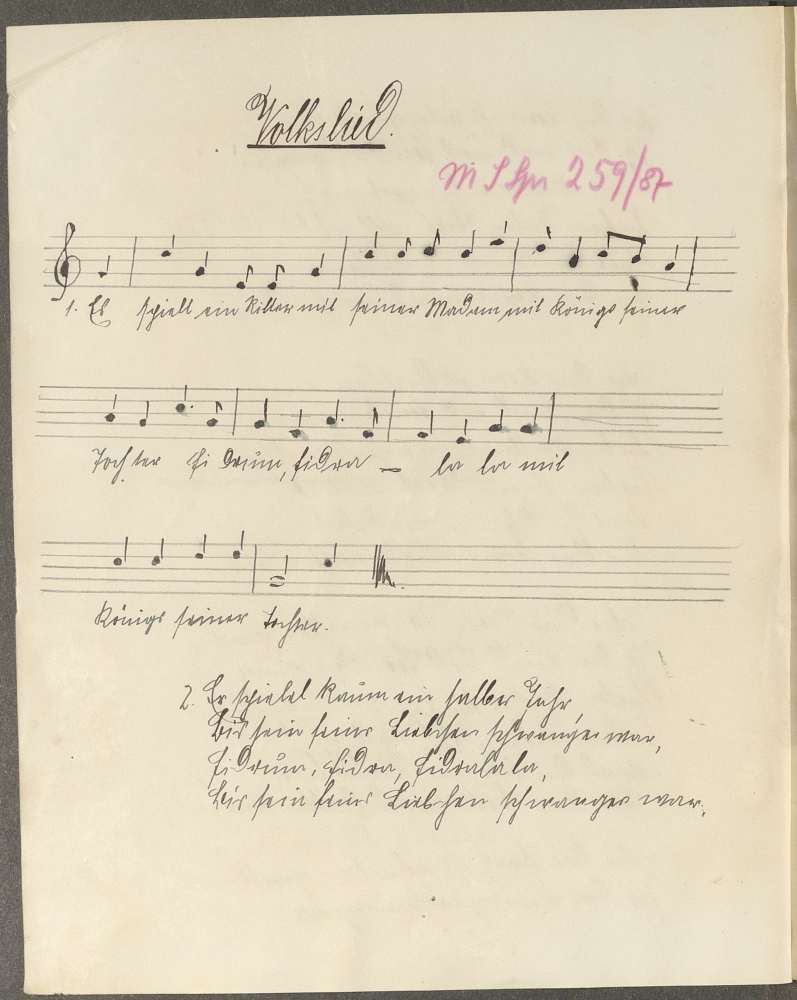 Volkslied.
M S Spr 259/87
1. Es spielt ein Ritter mit seiner Madam mit Königs seiner
Tochter Fi drum, fidra — la la mit
Königs seiner Tochter.
2. Er spielet kaum ein halbes Jahr,
Bis sein feins Liebchen schwanger war,
Fidrum, fidra, fidralala,
Bis sein feins Liebchen schwanger war.